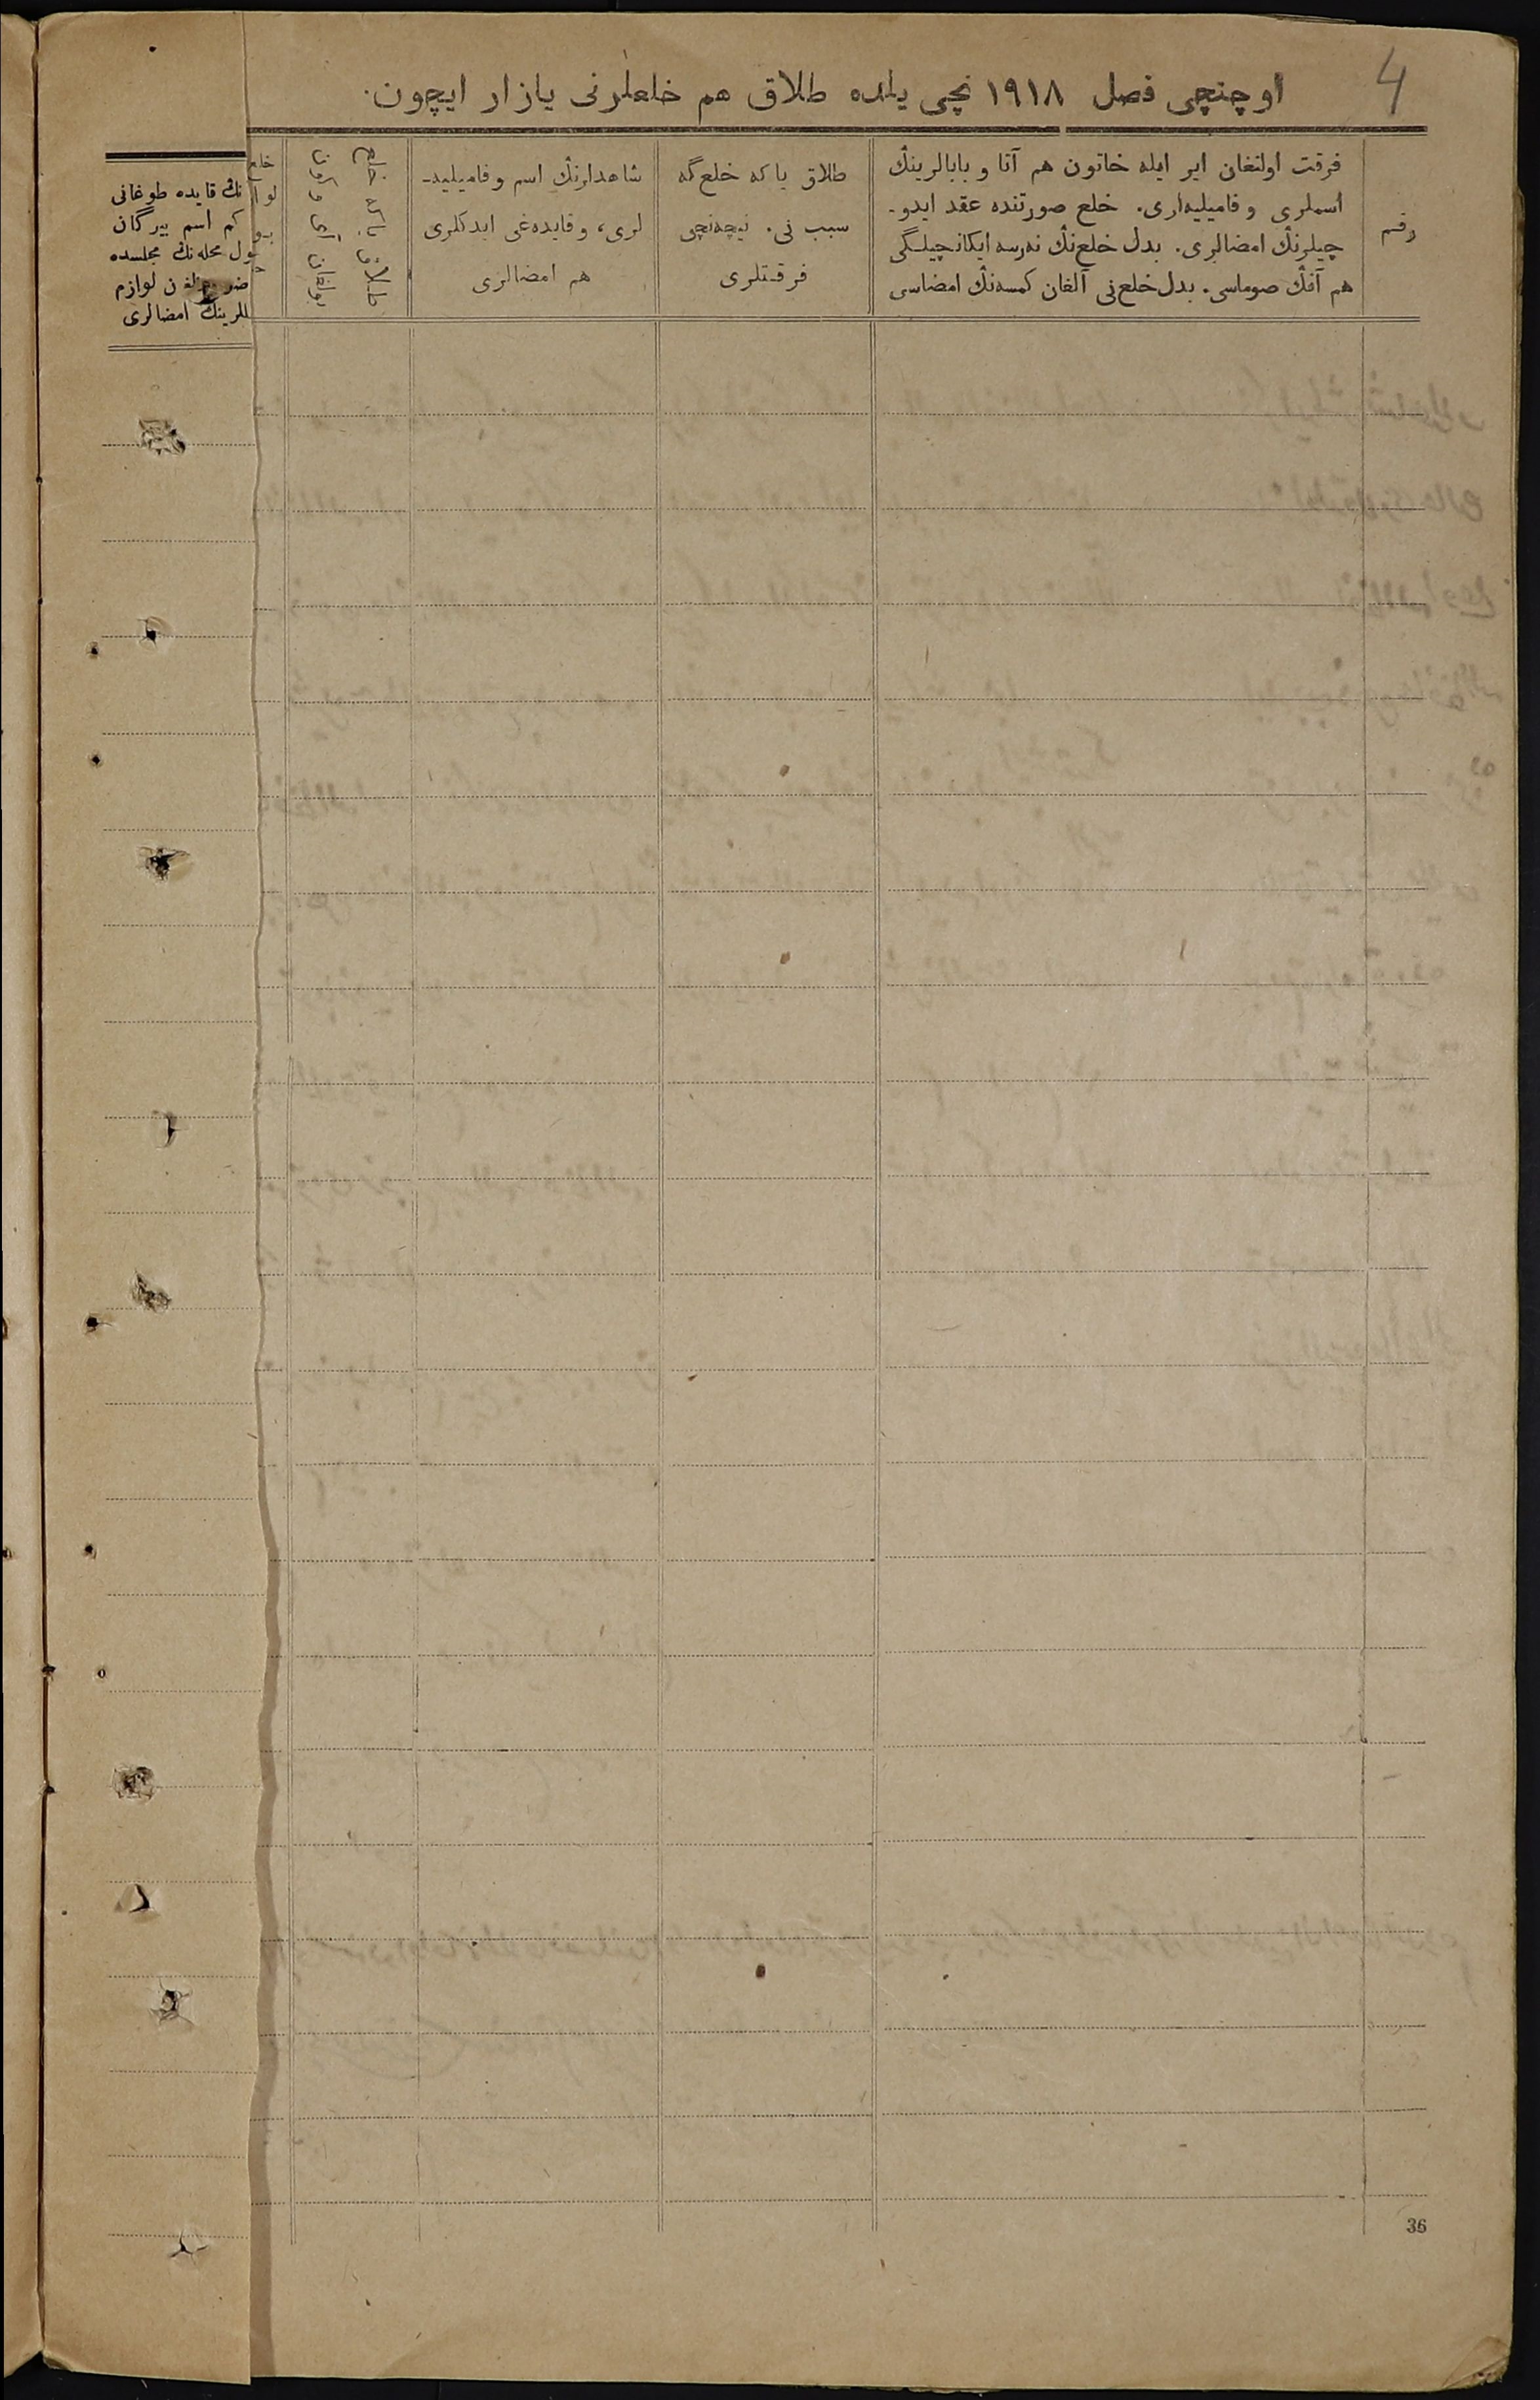 4
اوچنچی فصل ۱۹۱۸ نچی یلده طلاق هم خلعلرنی یازار ایچون.
رقم
فرقت اولنغان ایر ایله خاتون هم آتا و بابالرینڭ
اسملری و فامیلیه‌لری. خلع صورتنده عقد ایدو-
چیلرنڭ امضالری. بدل خلع‌نڭ نه‌رسه ایکانچیلگی
هم آنڭ صوماسی. بدل خلع‌نی آلغان کمسه‌نڭ امضاسی
طلاق یا که خلع گه
سبب نی. نیچه‌نچی
فرقتلری
شاهدلرنڭ اسم و فامیلیه-
لری، و قایده‌غی ایدکلری
هم امضالری
طلاق یا که خلع
بولغان آی و کون
خلع
لو
نڭ قایده طوغانی
کم اسم بیرگان
ول محله‌نڭ مجلسده
ن لوازم
للرینڭ امضالری
36